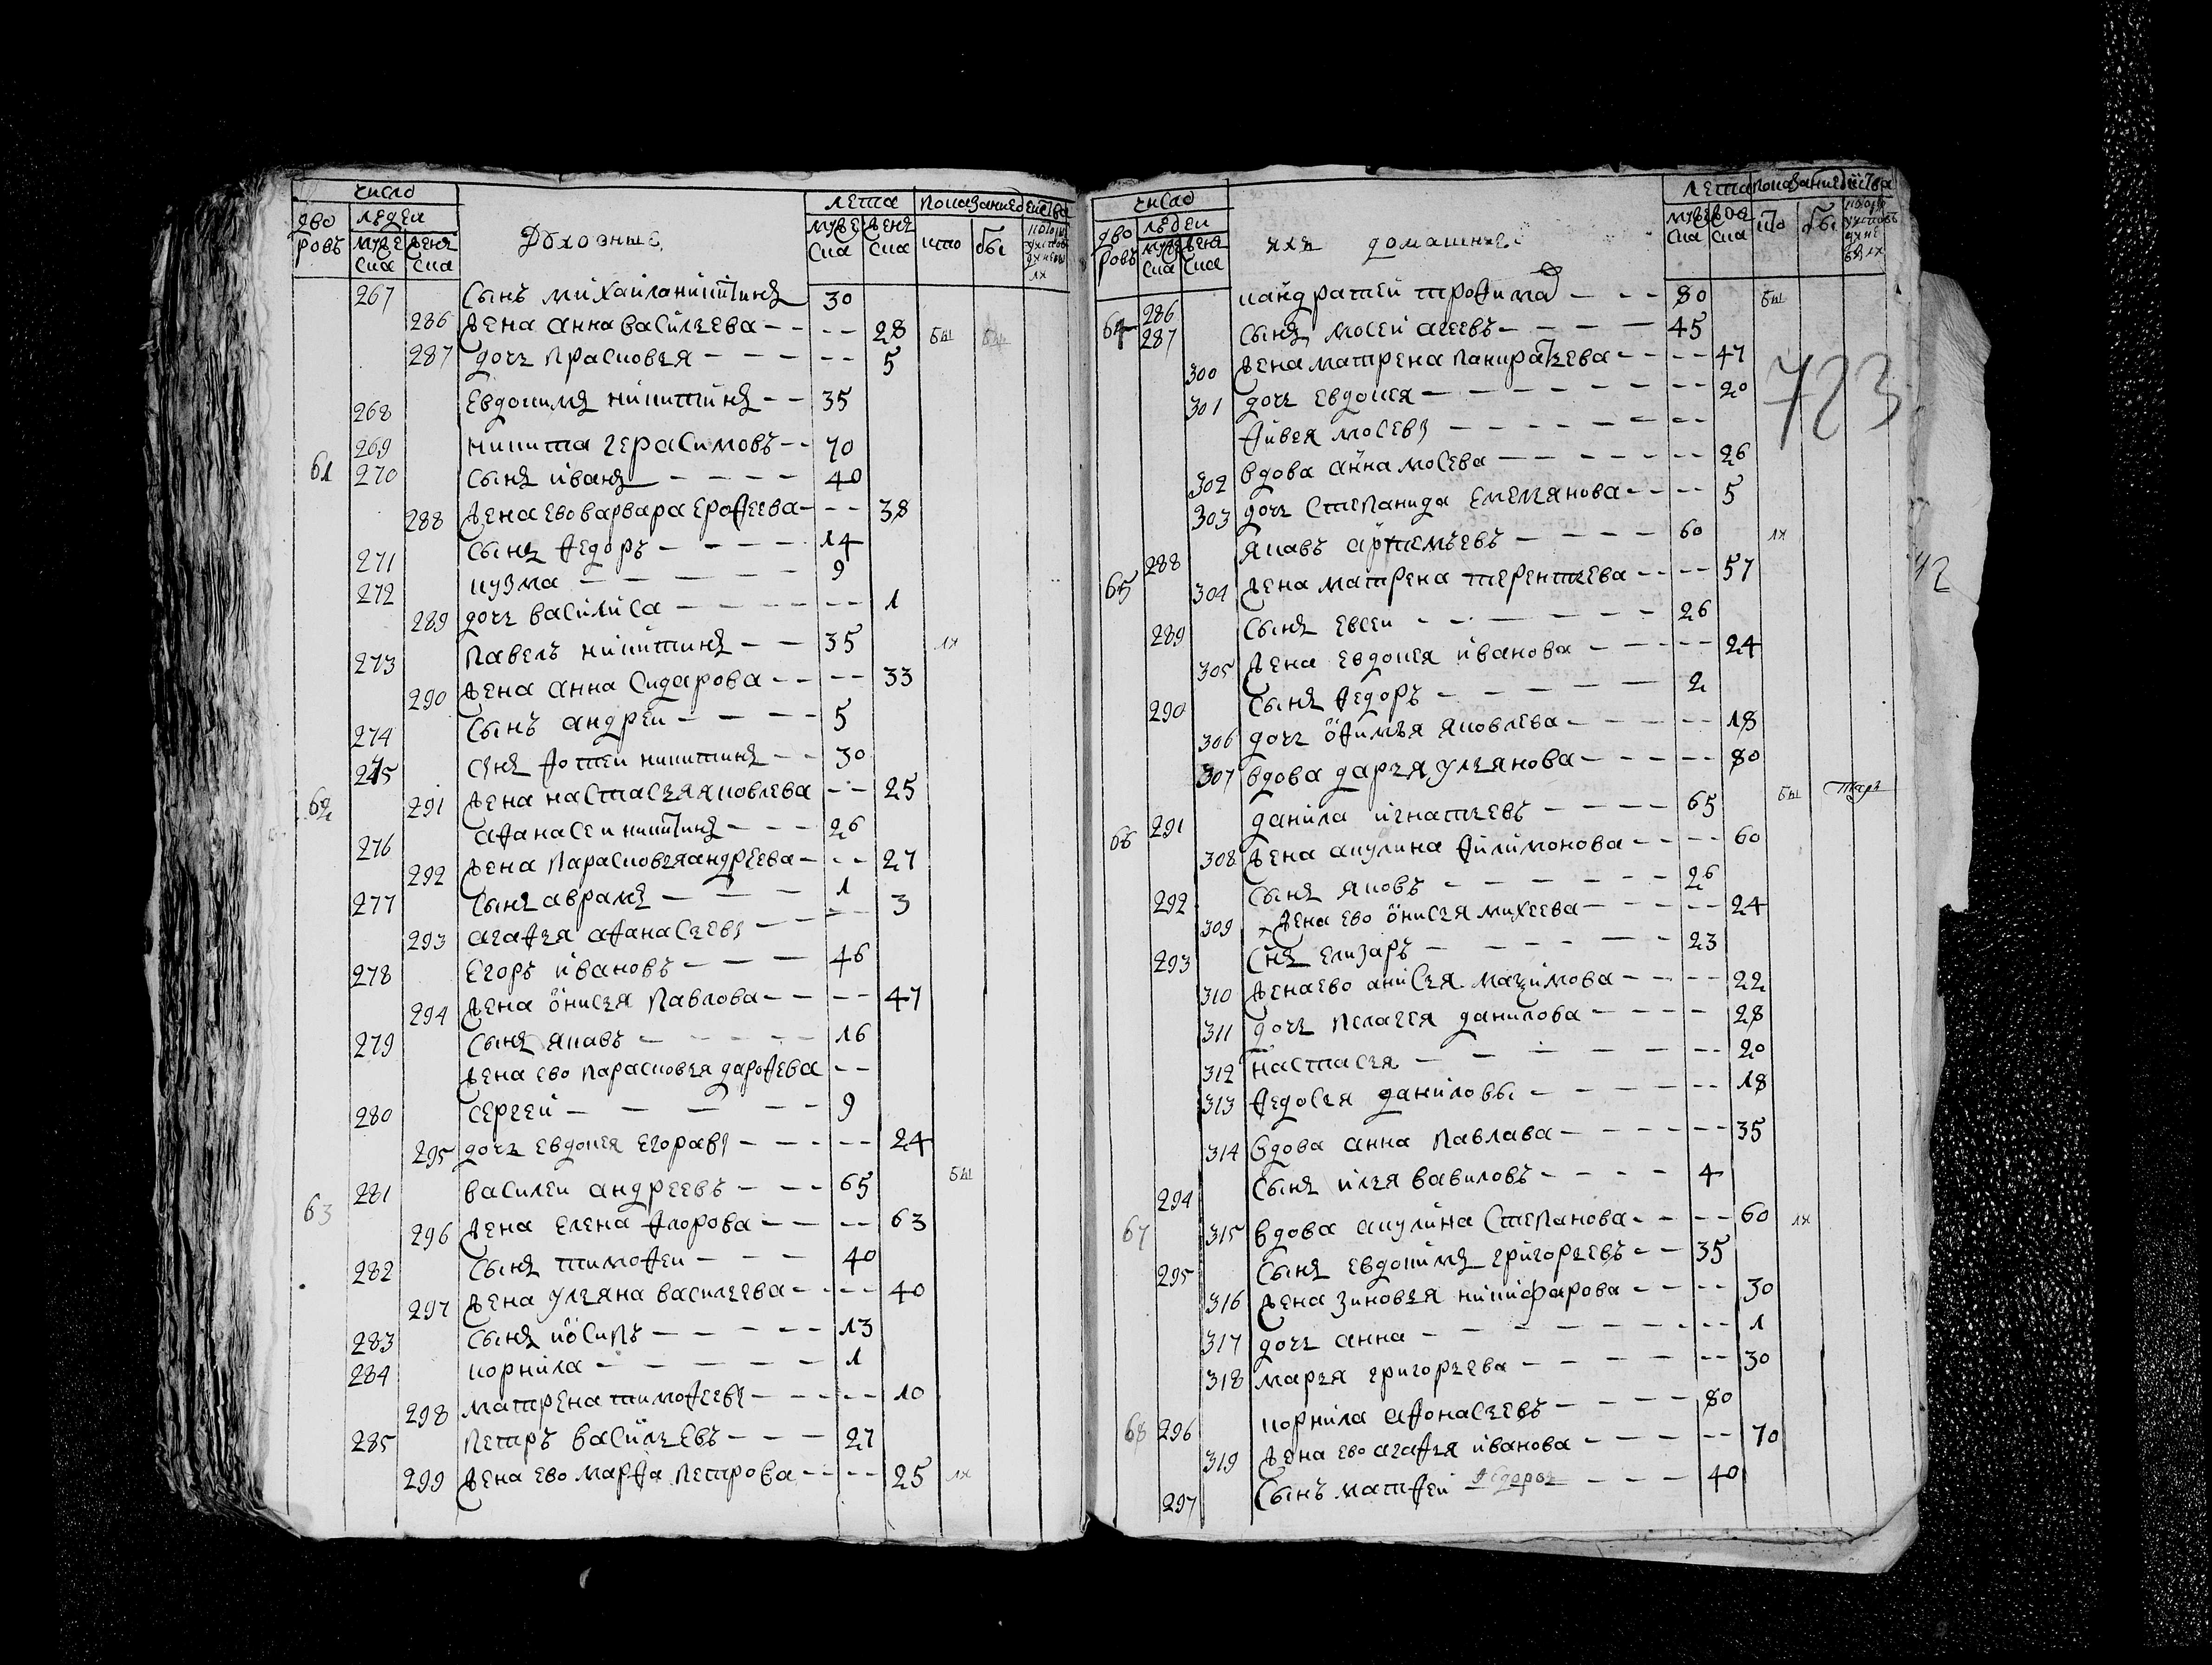 число
лета показание деиства
дво ровъ
людеи
муже ска
женска
Духовные
муже ска
женска
кто
бы
267 сынъ михаила никитинъ 30
286 жена анна васильева 28 бы
287 дочь прасковья 5
268 Евдокимъ никитинъ 35
269 никита герасимовъ 70
61 270 сынъ иванъ 40
288 жена ево варвара ерофеева 38
271 сынъ федоръ 14
272 кузма 9
289 дочь василиса 1
273 павелъ никитинъ 35
290 жена анна сидарова 33
274 сынъ андреи 5
275 сынъ фотеи никитинъ 30
62 291 жена настасья яковлева 25
276 афанасеи никитинъ 26
292 жена парасковья андреева 27
277 сынъ аврамъ 1
293 агафья афанасьев 3
278 егоръ ивановъ 46
294 жена онисья павлова 47
279 сынъ якавъ 16
жена ево парасковья дарофева
280 сергеи 9
295 дочь евдокея егорав 24
63 281 василеи андреевъ 65
296 жена елена флорова 63
282 сынъ тимофеи 40
297 жена ульяна васильева 40
283 сынъ иосипъ 13
284 корнила 1
298 матрена тимофеев 10
285 петръ васильевъ 27
299 жена ево марфа петрова 25
число
лета показание деиства
дво ровъ
людеи
муже ска
женска
ихъ домашние
муже ска
же ска
кто
бы
64 286 кандратеи трофима 80
287 сынъ мосеи агеевъ 45
300 жена матрена панкратьева 47
301 дочь евдокея 20
723
фивея мосев
302 вдова анна мосева 26
303 дочь степанида емельянова 5
65 288 якавъ артемъевъ 60
304 жена матрена терентьева 57
289 сынъ евсеи 26
305 жена евдокея иванова 24
290 сынъ федоръ 2
306 дочь офимья яковлева 18
307 вдова дарья ульянова 80
66 291 данила игнатьевъ 65
308 жена акулина филимонова 60
292 сынъ яковъ 26
309 жена ево онисья михеева 24
293 снъ елизаръ 23
310 жена ево анисья маξимова 22
311 дочь пелагея данилова 28
312 настасья 20
313 федосья даниловы 18
314 вдова анна павлава 35
294 сынъ илья вавиловъ 4
67 315 вдова акулина степанова 60
295 сынъ евдокимъ григорьевъ 35
316 жена зиновья никифарова 30
317 дочь анна 1
318 марья григорьева 30
68 296 корнила афонасьевъ 80
319 жена ево агафья иванова 70
297 сынъ матфеи 40